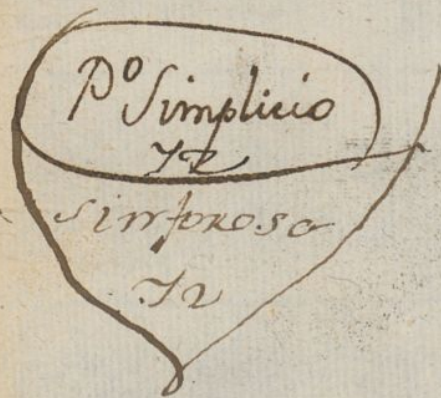 Pº Simplicio
72
sinforosa
72